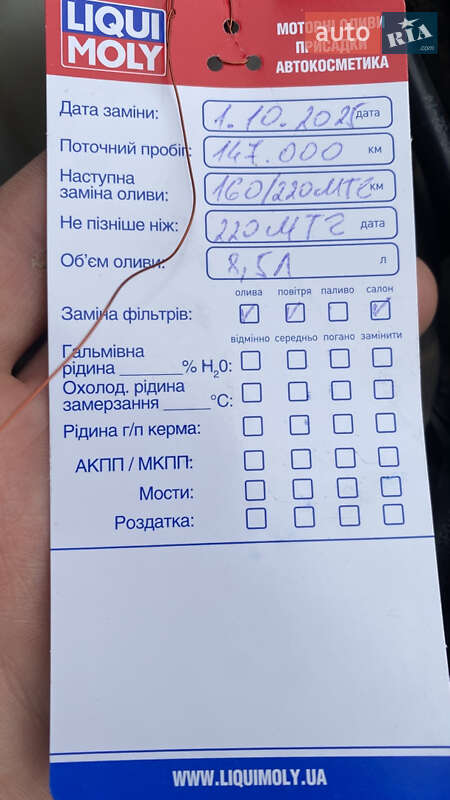 LIQUI
MOLY
МОТОРНІ ОЛИВИ
ПРИСАДКИ
АВТОКОСМЕТИКА
auto RIA .com
Дата заміни: 1.10.2025 дата
Поточний пробіг: 147.000 км
Наступна
заміна оливи: 160/220МТГ км
Не пізніше ніж: 220МТГ дата
Об'єм оливи: 8,5л л
олива повітря паливо салон
Заміна фільтрів:
відмінно середньо погано замінити
Гальмівна
рідина ______% H₂0:
Охолод. рідина
замерзання _____°C:
Рідина г/п керма:
АКПП / МКПП:
Мости:
Роздатка:
WWW.LIQUIMOLY.UA